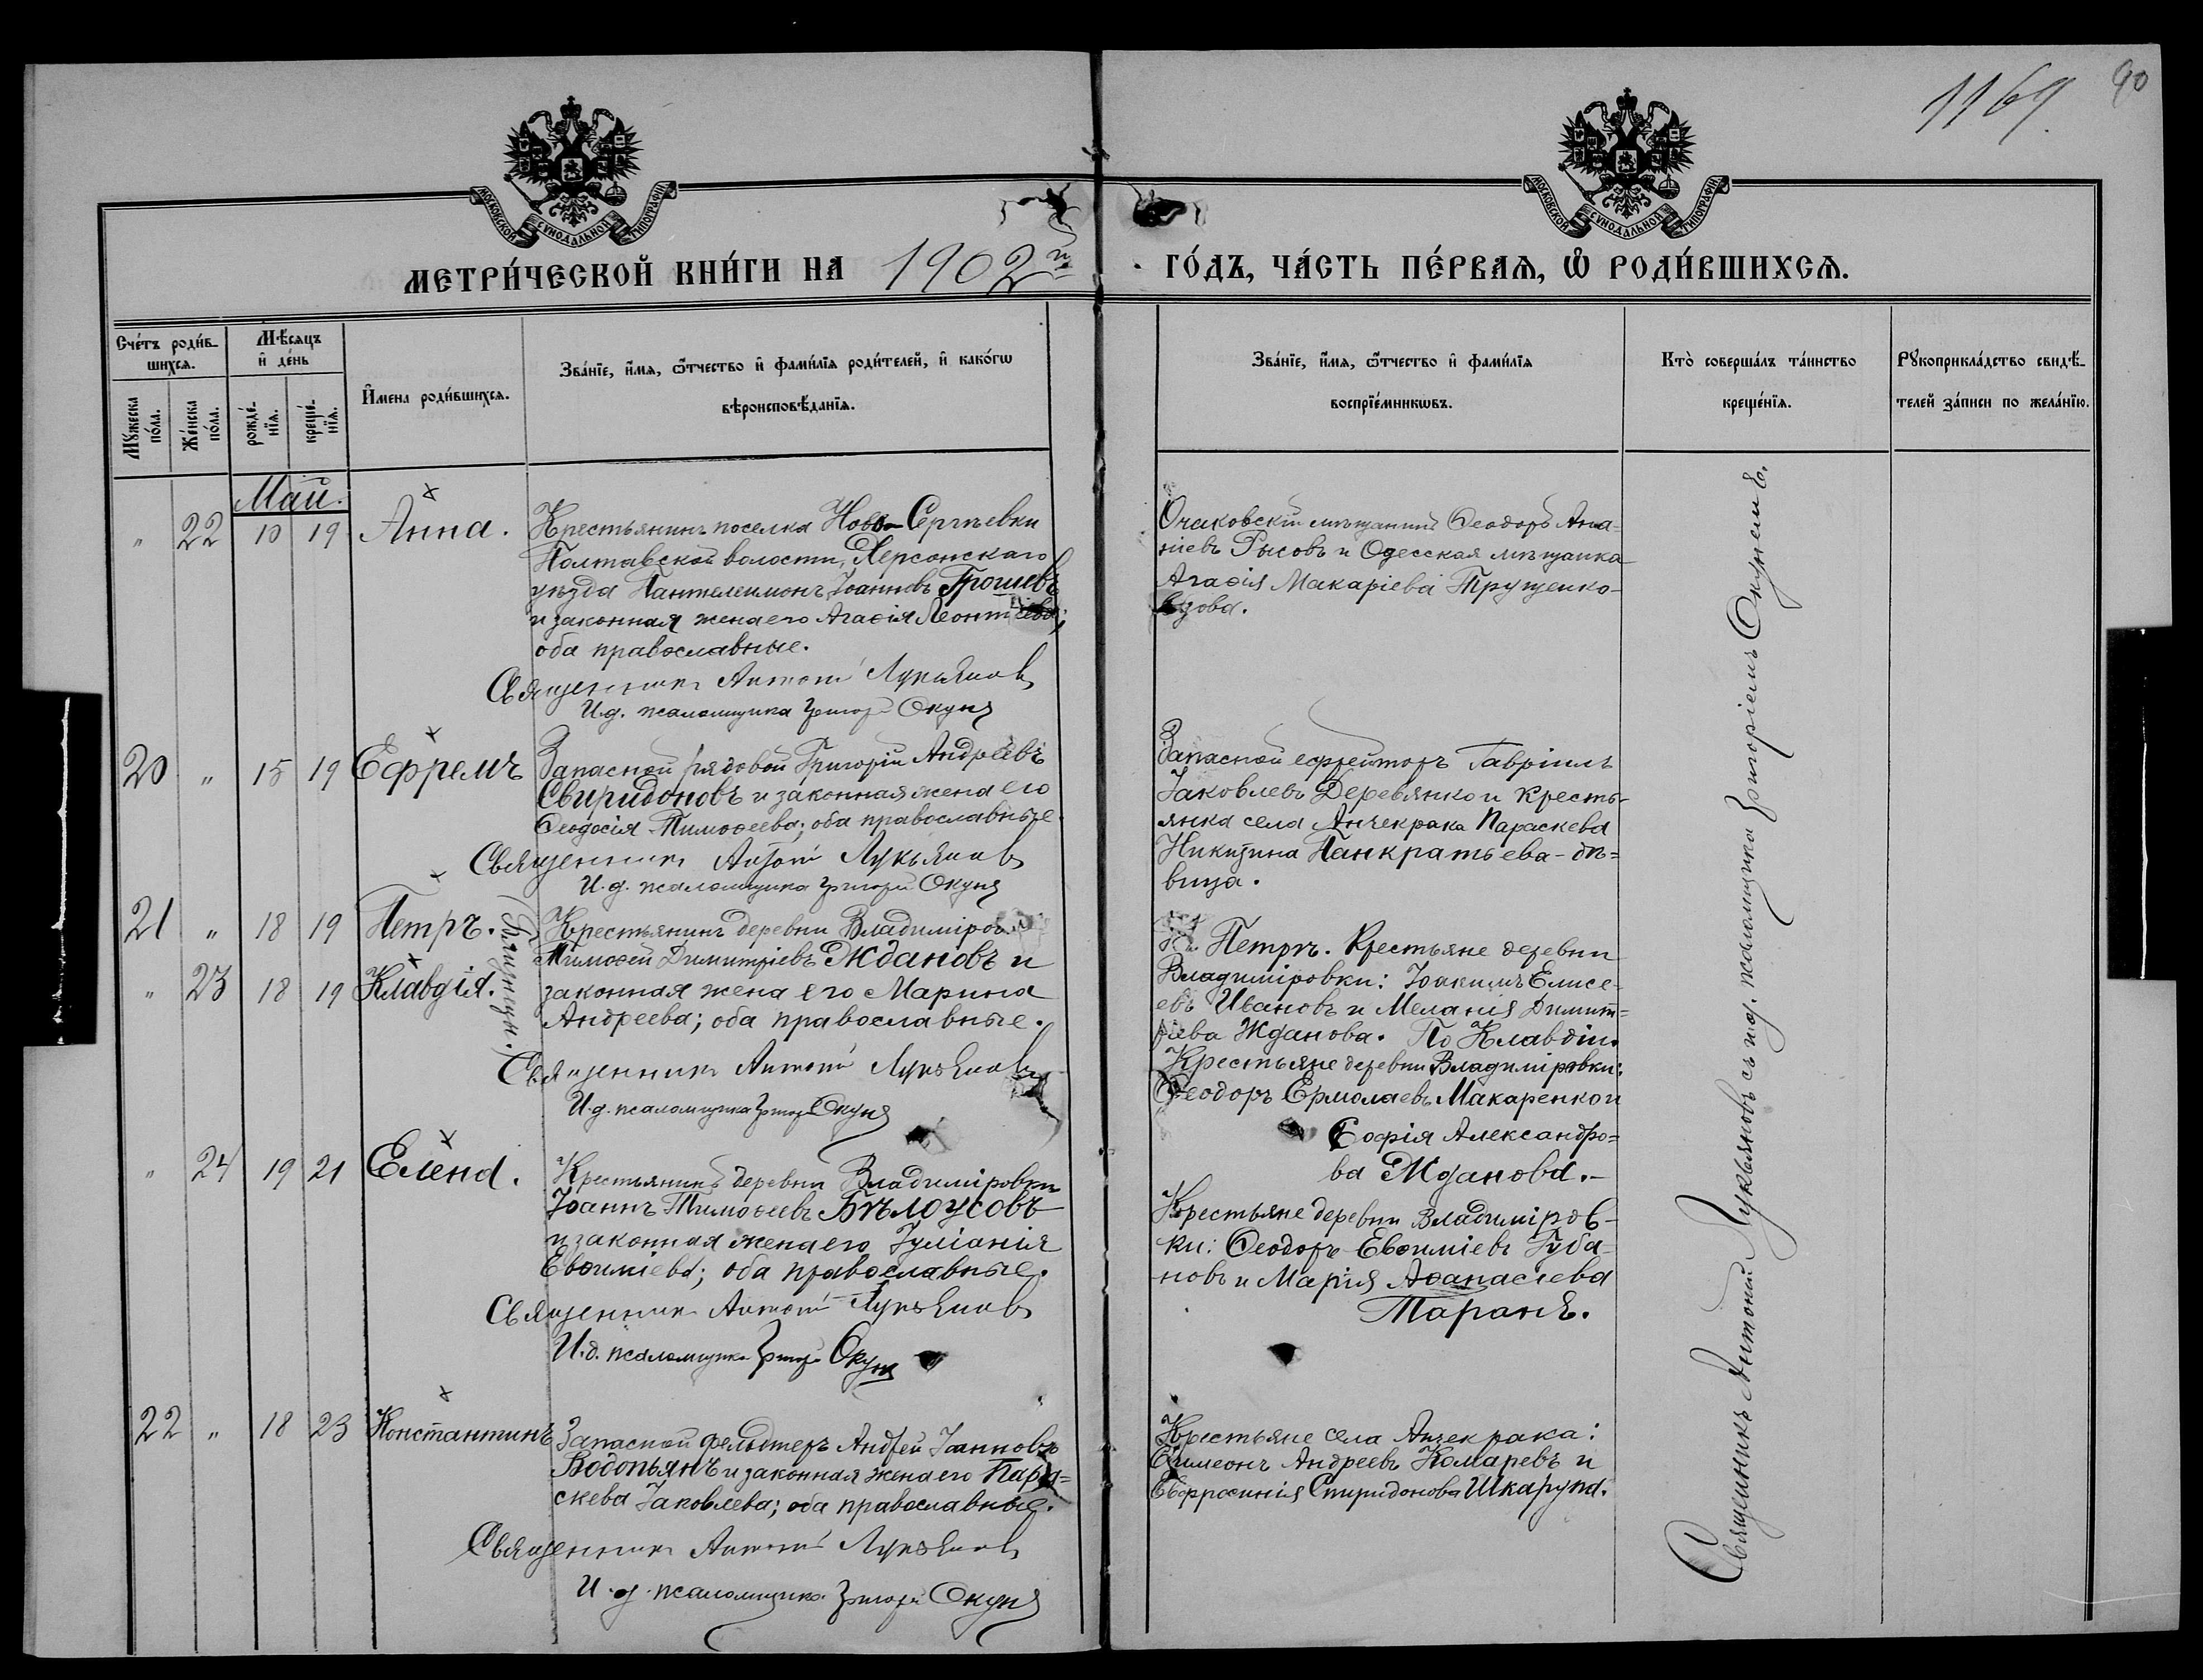 1169.
90
МОСКОВСКОЙ СУНОДАЛЬНОЙ ТИПОГРАФІИ
МОСКОВСКОЙ СУНОДАЛЬНОЙ ТИПОГРАФІИ
МЕТРИ́ЧЕСКОЙ КНИ́ГИ НА 1902й ГО́ДЪ, ЧА́СТЬ ПЕ́РВАѦ, Ѡ҆ РОДИ́ВШИХСѦ.
Сче́тъ роди́в-
шихсѧ.
Мꙋ́жеска по́ла.
Же́нска по́ла.
Мѣ́сѧцъ
и҆ де́нь
рожде́-
нїѧ.
креще́-
нїѧ.
И҆мена роди́вшихсѧ.
Зва́нїе, и҆́мѧ, ѻ҆́тчество и҆ фами́лїѧ роди́телей, и҆ како́гѡ
вѣроисповѣ́данїѧ.
Зва́нїе, и҆́мѧ, ѻ҆́тчество и҆ фами́лїѧ
воспрїе́мникѡвъ.
Кто̀ соверша́лъ та́инство
креще́нїѧ.
Рꙋкоприкла́дство свидѣ́-
телей за́писи по жела́нїю.
Май.
" 22 10 19 Анна.
Крестьянинъ поселка Ново-Сергѣевки
Полтавской волости, Херсонскаго
уѣзда Пантелеимонъ Іоанновъ Грошевъ
и законная жена его Агаѳія Леонтіева;
оба православные.
Священникъ Антоній Лукьяновъ
И.д. псаломщика Григорій Окунь
Очаковскій мѣщанинъ Ѳеодоръ Ана-
ніевъ Рысовъ и Одесская мѣщанка
Агаѳія Макаріева Трущенко-
20 " 15 19 Ефремъ
Запасной рядовой Григорій Андреевъ
Свиридоновъ и законная жена его
Ѳеодосія Тимоѳеева; оба православные.
Священникъ Антоній Лукьяновъ
И.д. псаломщика Григорій Окунь
Запасной ефрейторъ Гавріилъ
Іаковлевъ Деревянко и кресть-
янка села Анчекрака Параскева
Никитина Панкратьева - дѣ-
вица.
21 " 18 19 Петръ.
" 23 18 19 Клавдія.
(Близнецы.)
Крестьянинъ деревни Владиміровки
Тимоѳей Димитріевъ Ждановъ и
законная жена его Марина
Андреева; оба православные.
Священникъ Антоній Лукьяновъ
И.д. псаломщика Григорій Окунь
Петръ. Крестьяне деревни
Владиміровки: Іоакимъ Елисе-
евъ Ивановъ и Меланія Димит-
ріева Жданова. По Клавдіи.
Крестьяне деревни Владиміровки:
Ѳеодоръ Ермолаевъ Макаренко и
Софія Александро-
ва Жданова.-
" 24 19 21 Елена.
Крестьянинъ деревни Владиміровки
Іоаннъ Тимоѳеевъ Бѣлоусовъ
и законная жена его Іуліанія
Евѳиміева; оба православные.
Священникъ Антоній Лукьяновъ
И.д. псаломщика Григорій Окунь
Крестьяне деревни Владиміров-
ки: Ѳеодоръ Евѳиміевъ Губа-
новъ и Марія Аѳанасіева
Таранъ.
22 " 18 23 Константинъ
Запасной фельдшеръ Андрей Іоанновъ
Водопьянъ и законная жена его Пара-
скева Іаковлева; оба православные.
Священникъ Антоній Лукьяновъ
И.д. псаломщика Григорій Окунь
Крестьяне села Анчекрака:
Симеонъ Андреевъ Комаревъ и
Евфросинія Спиридонова Шкарупа.
Священникъ Антоній Лукьяновъ съ и.д. псаломщика Григоріемъ Окунемъ.